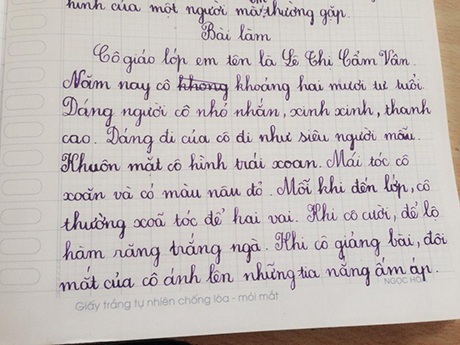 hình của một người mà em thường gặp.
Bài làm
Cô giáo lớp em tên là Lê Thi Cẩm Vân.
Năm nay cô không khoảng hai mươi tư tuổi.
Dáng người cô nhỏ nhắn, xinh xinh, thanh
cao. Dáng đi của cô đi như siêu người mẫu.
Khuôn mặt cô hình trái xoan. Mái tóc cô
xoăn và có màu nâu đỏ. Mỗi khi đến lớp, cô
thường xoã tóc để hai vai. Khi cô cười, để lộ
hàm răng trắng ngà. Khi cô giảng bài, đôi
mắt của cô ánh lên những tia nắng ấm áp.
Giấy trắng tự nhiên chống lóa - mỏi mắt